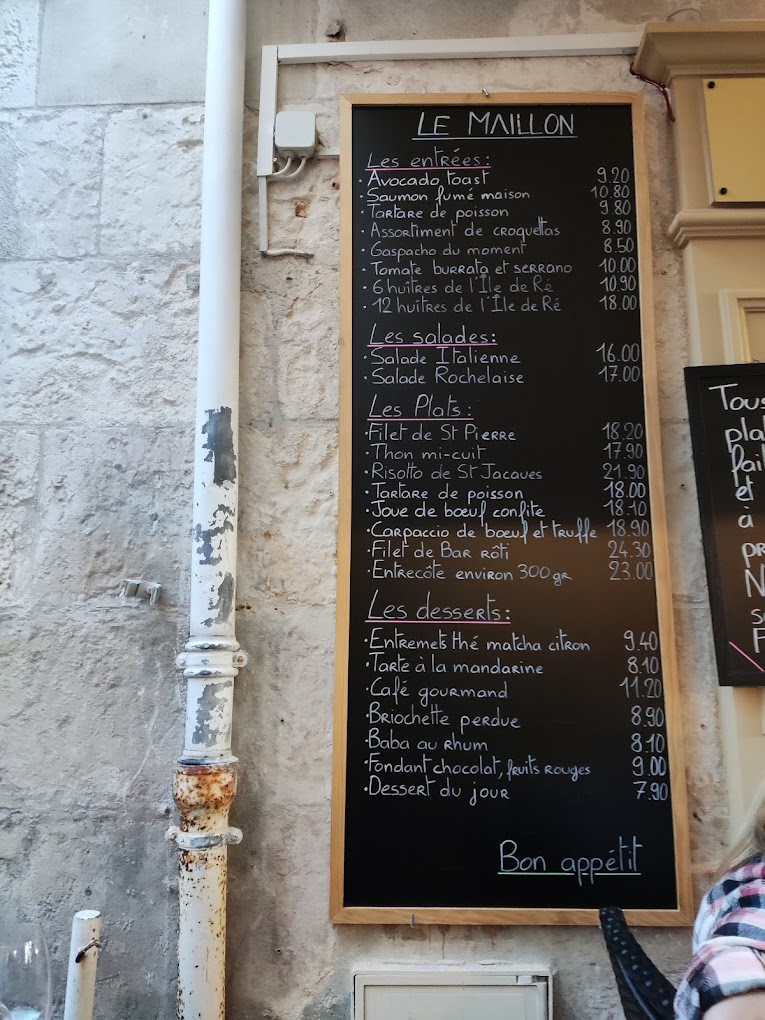 LE MAILLON
Les entrées:
· Avocado toast 9.20
· Saumon fumé maison 10.80
· Tartare de poisson 9.80
· Assortiment de croquettas 8.90
· Gaspacho du moment 8.50
· Tomate burrata et serrano 10.00
· 6 huîtres de l'Île de Ré 10.90
· 12 huîtres de l'Île de Ré 18.00
Les salades:
· Salade Italienne 16.00
· Salade Rochelaise 17.00
Les Plats:
· Filet de St Pierre 18.20
· Thon mi-cuit 17.90
· Risotto de St Jacques 21.90
· Tartare de poisson 18.00
· Joue de bœuf confite 18.10
· Carpaccio de bœuf et truffe 18.90
· Filet de Bar rôti 24.30
· Entrecôte environ 300gr 23.00
Les desserts:
· Entremets thé matcha citron 9.40
· Tarte à la mandarine 8.10
· Café gourmand 11.20
· Briochette perdue 8.90
· Baba au rhum 8.10
· Fondant chocolat, fruits rouges 9.00
· Dessert du jour 7.90
Bon appétit
Tous
pla
fai
et
à
pr
N
s
F